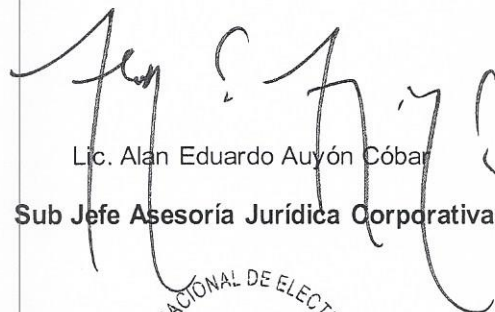 Lic. Alan Eduardo Auyón Cóbar
Sub Jefe Asesoría Jurídica Corporativa
DE